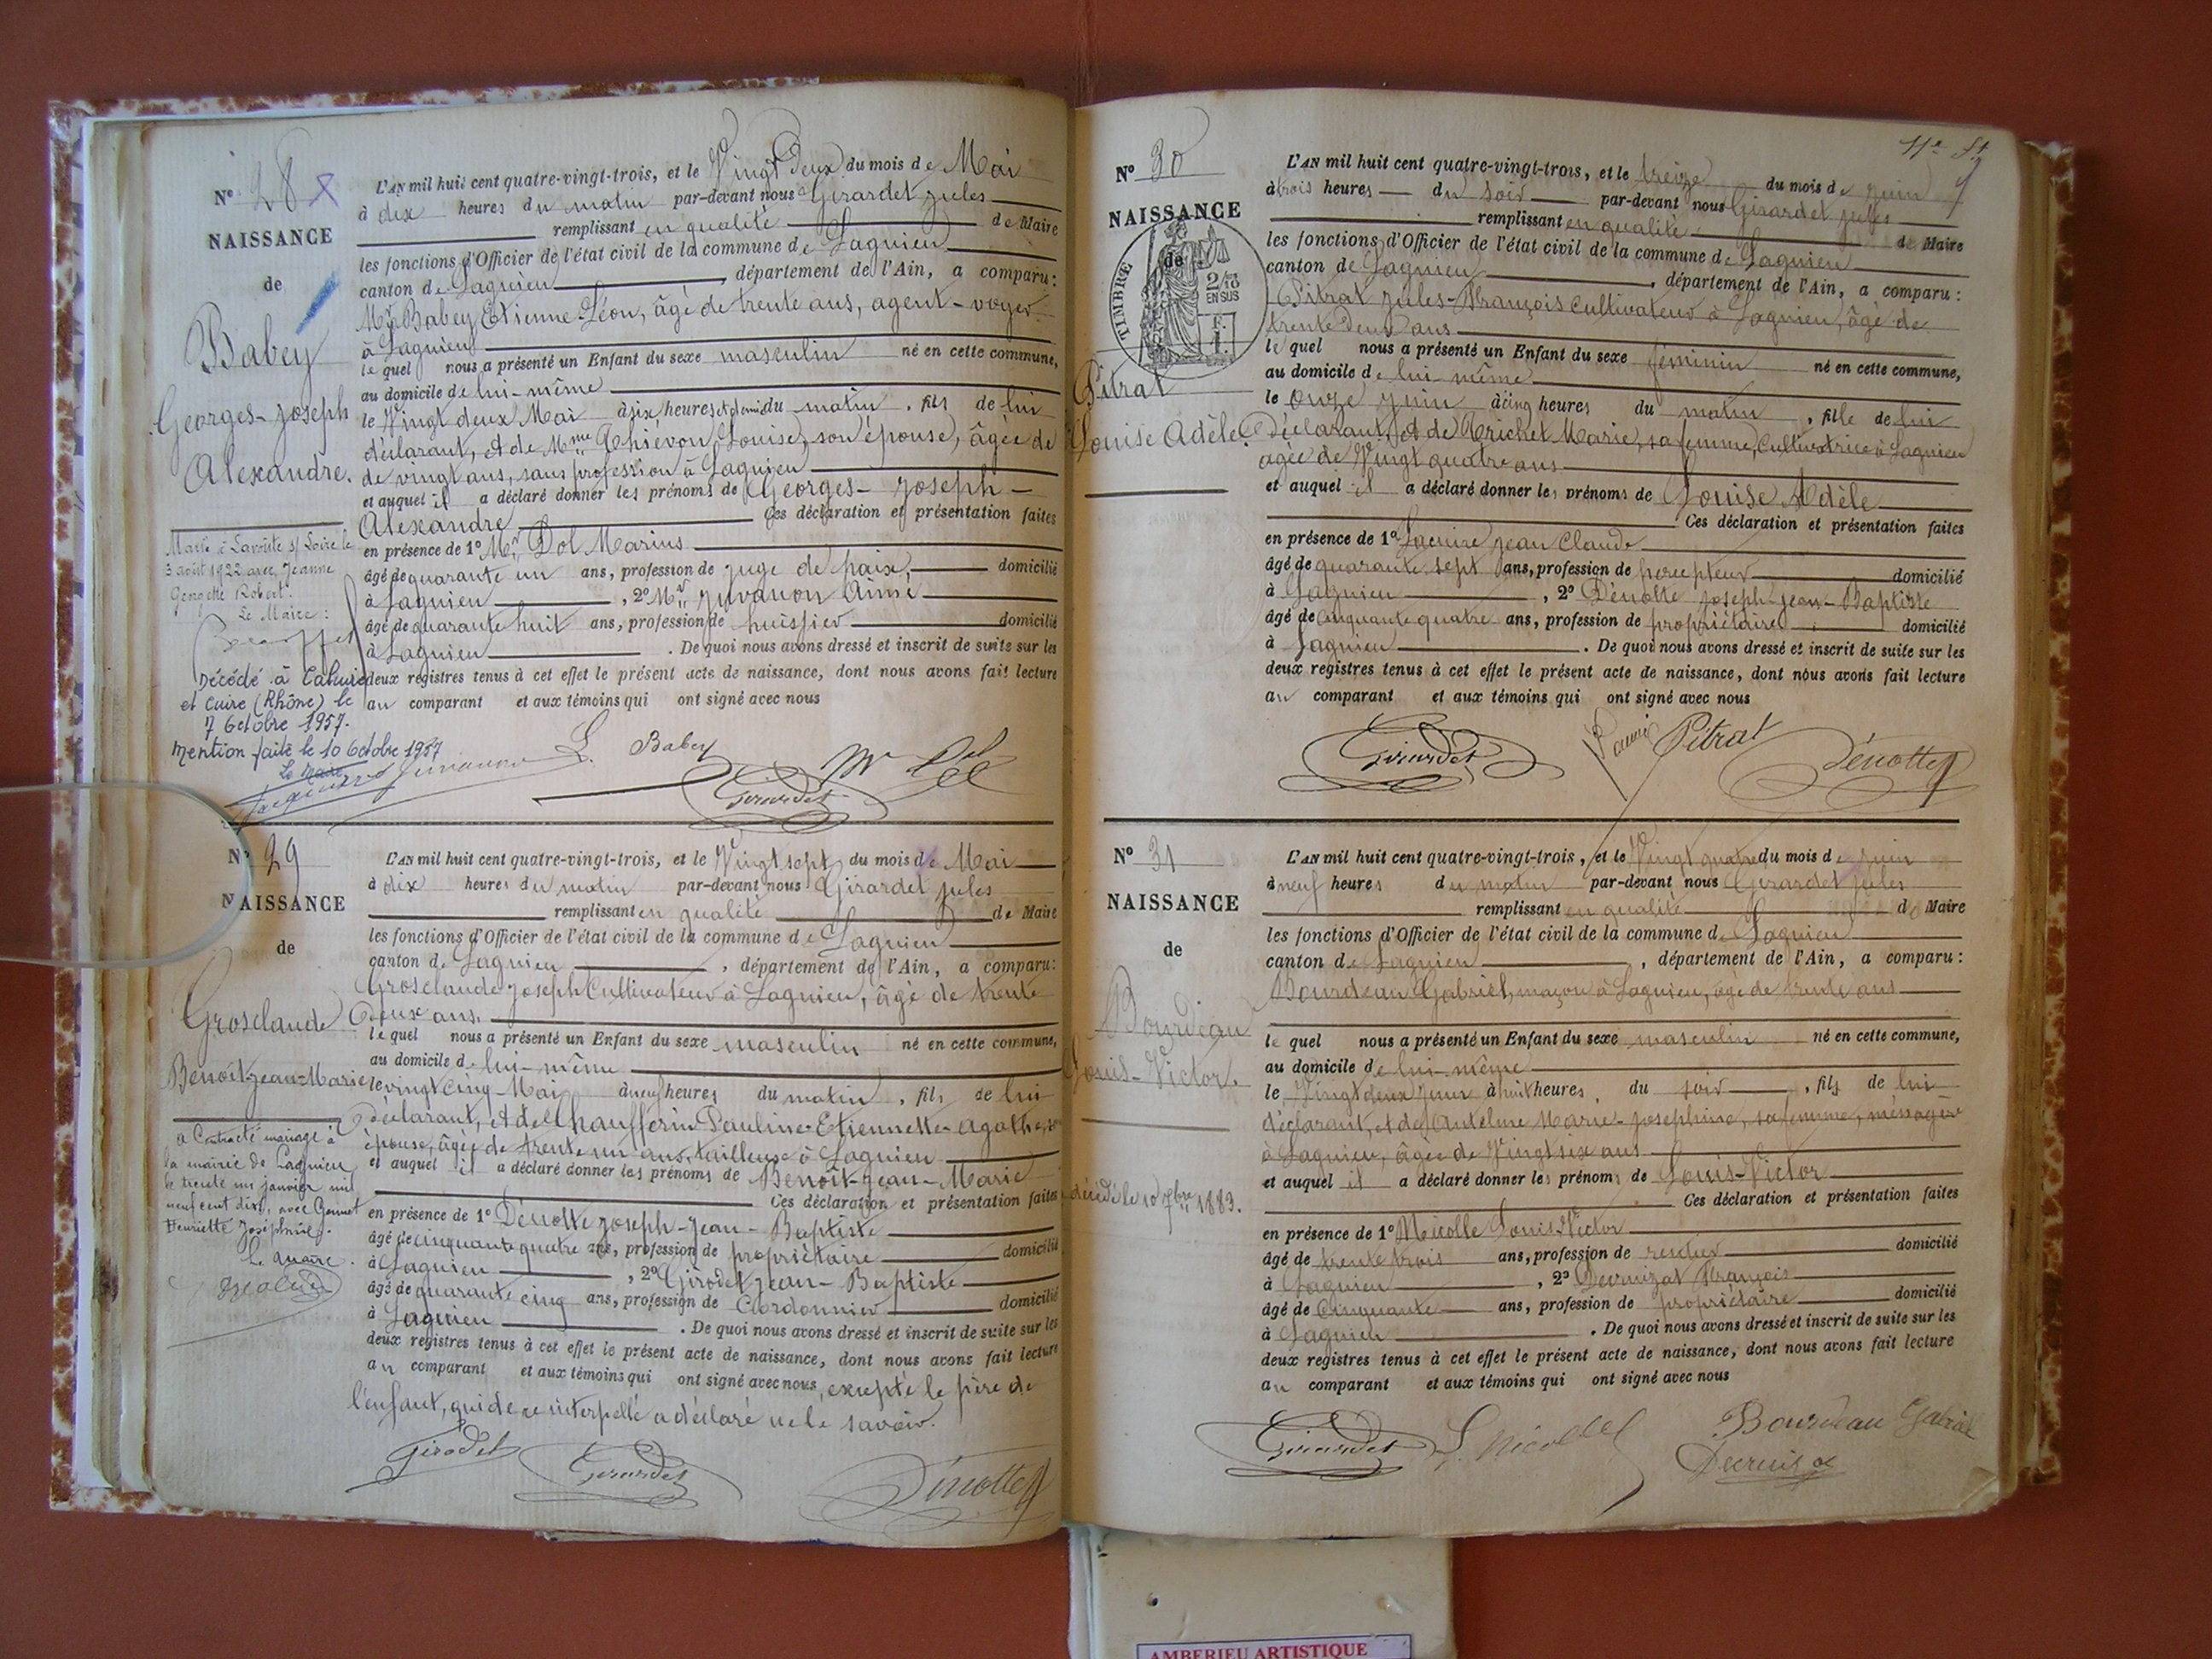 Nº 28
NAISSANCE
de
Babey
Georges-Joseph
Alexandre.
Marié à Lavoûte s/ Loire le
3 août 1922 avec Jeanne
Georgette Robert.
Le Maire :
Décédé à Caluire
et Cuire (Rhône) le
7 Octobre 1957.
Mention faite le 10 Octobre 1957
Le Maire
L'AN mil huit cent quatre-vingt-trois, et le Vingt Deux du mois de Mai
à dix heures du matin par-devant nous Girardet Jules
remplissant en qualité de Maire
les fonctions d'Officier de l'état civil de la commune de Lagnieu
canton de Lagnieu, département de l'Ain, a comparu :
Mr Babey Etienne-Léon, âgé de trente ans, agent-voyer
à Lagnieu
lequel nous a présenté un Enfant du sexe masculin né en cette commune,
au domicile de lui-même
le Vingt deux Mai à six heures et demi du matin, fils de lui
déclarant, et de Mme Thiévon Louise, son épouse, âgée de
de vingt ans, sans profession à Lagnieu
et auquel il a déclaré donner les prénoms de Georges-Joseph-
Alexandre Ces déclaration et présentation faites
en présence de 1º Mr Dol Marius
âgé de quarante un ans, profession de juge de paix, domicilié
à Lagnieu, 2º Mr Juvanon Aimé
âgé de quarante huit ans, profession de huissier domicilié
à Lagnieu. De quoi nous avons dressé et inscrit de suite sur les
deux registres tenus à cet effet le présent acte de naissance, dont nous avons fait lecture
au comparant et aux témoins qui ont signé avec nous
L. Babey
Juvanon
Girardet
M Dol
Nº 29
NAISSANCE
de
Grosclaude
Benoît-Jean-Marie
a Contracté mariage à
la mairie de Lagnieu
le trente un janvier mil
neuf cent dix, avec
Henriette Joséphine.
Le Maire
L'AN mil huit cent quatre-vingt-trois, et le Vingt sept du mois de Mai
à dix heures du matin par-devant nous Girardet Jules
remplissant en qualité de Maire
les fonctions d'Officier de l'état civil de la commune de Lagnieu
canton de Lagnieu, département de l'Ain, a comparu :
Grosclaude Joseph Cultivateur à Lagnieu, âgé de trente
deux ans.
lequel nous a présenté un Enfant du sexe masculin né en cette commune,
au domicile de lui-même
le vingt cinq Mai à neuf heures du matin, fils de lui
déclarant, et de Chaufferin Pauline-Etiennette-Agathe, son
épouse, âgée de trente un ans, tailleuse à Lagnieu
et auquel il a déclaré donner les prénoms de Benoît-Jean-Marie
Ces déclaration et présentation faites
en présence de 1º Dénotte Joseph-Jean-Baptiste
âgé de cinquante quatre ans, profession de propriétaire domicilié
à Lagnieu, 2º Girodet Jean-Baptiste
âgé de quarante cinq ans, profession de Cordonnier domicilié
à Lagnieu. De quoi nous avons dressé et inscrit de suite sur les
deux registres tenus à cet effet le présent acte de naissance, dont nous avons fait lecture
au comparant et aux témoins qui ont signé avec nous, excepté le père de
l'enfant, qui de ce interpellé a déclaré ne le savoir.
Girodet
Girardet
Dénotte
Nº 30
NAISSANCE
de
TIMBRE
2/10 EN SUS
Pitrat
Louise Adèle
L'AN mil huit cent quatre-vingt-trois, et le treize du mois de Juin
à trois heures du soir par-devant nous Girardet Jules
remplissant en qualité de Maire
les fonctions d'Officier de l'état civil de la commune de Lagnieu
canton de Lagnieu, département de l'Ain, a comparu :
Pitrat Jules-François Cultivateur à Lagnieu, âgé de
trente deux ans
lequel nous a présenté un Enfant du sexe féminin né en cette commune,
au domicile de lui-même
le onze Juin à cinq heures du matin, fille de lui
Déclarant, et de Trichet Marie, sa femme, Cultivatrice à Lagnieu
âgée de Vingt quatre ans
et auquel il a déclaré donner les prénoms de Louise Adèle
Ces déclaration et présentation faites
en présence de 1º Jean Claude
âgé de quarante sept ans, profession de percepteur domicilié
à Lagnieu, 2º Dénotte Joseph-Jean-Baptiste
âgé de Cinquante quatre ans, profession de propriétaire domicilié
à Lagnieu. De quoi nous avons dressé et inscrit de suite sur les
deux registres tenus à cet effet le présent acte de naissance, dont nous avons fait lecture
au comparant et aux témoins qui ont signé avec nous
Girardet
Pitrat
Dénotte
Nº 31
NAISSANCE
de
Bourdeau
Louis-Victor.
décédé le 10 7bre 1883.
L'AN mil huit cent quatre-vingt-trois, et le Vingt quatre du mois de Juin
à neuf heures du matin par-devant nous Girardet Jules
remplissant en qualité de Maire
les fonctions d'Officier de l'état civil de la commune de Lagnieu
canton de Lagnieu, département de l'Ain, a comparu :
Bourdeau Gabriel, maçon à Lagnieu, âgé de trente ans
lequel nous a présenté un Enfant du sexe masculin né en cette commune,
au domicile de lui-même
le Vingt deux Juin à huit heures du soir, fils de lui
déclarant, et de Antelme Marie-Josephine, sa femme, ménagère
à Lagnieu, âgée de Vingt six ans
et auquel il a déclaré donner les prénoms de Louis-Victor
Ces déclaration et présentation faites
en présence de 1º Nicolle Louis Victor
âgé de trente trois ans, profession de rentier domicilié
à Lagnieu, 2º François
âgé de Cinquante ans, profession de propriétaire domicilié
à Lagnieu. De quoi nous avons dressé et inscrit de suite sur les
deux registres tenus à cet effet le présent acte de naissance, dont nous avons fait lecture
au comparant et aux témoins qui ont signé avec nous
Girardet
Bourdeau Gabriel
AMBERIEU ARTISTIQUE